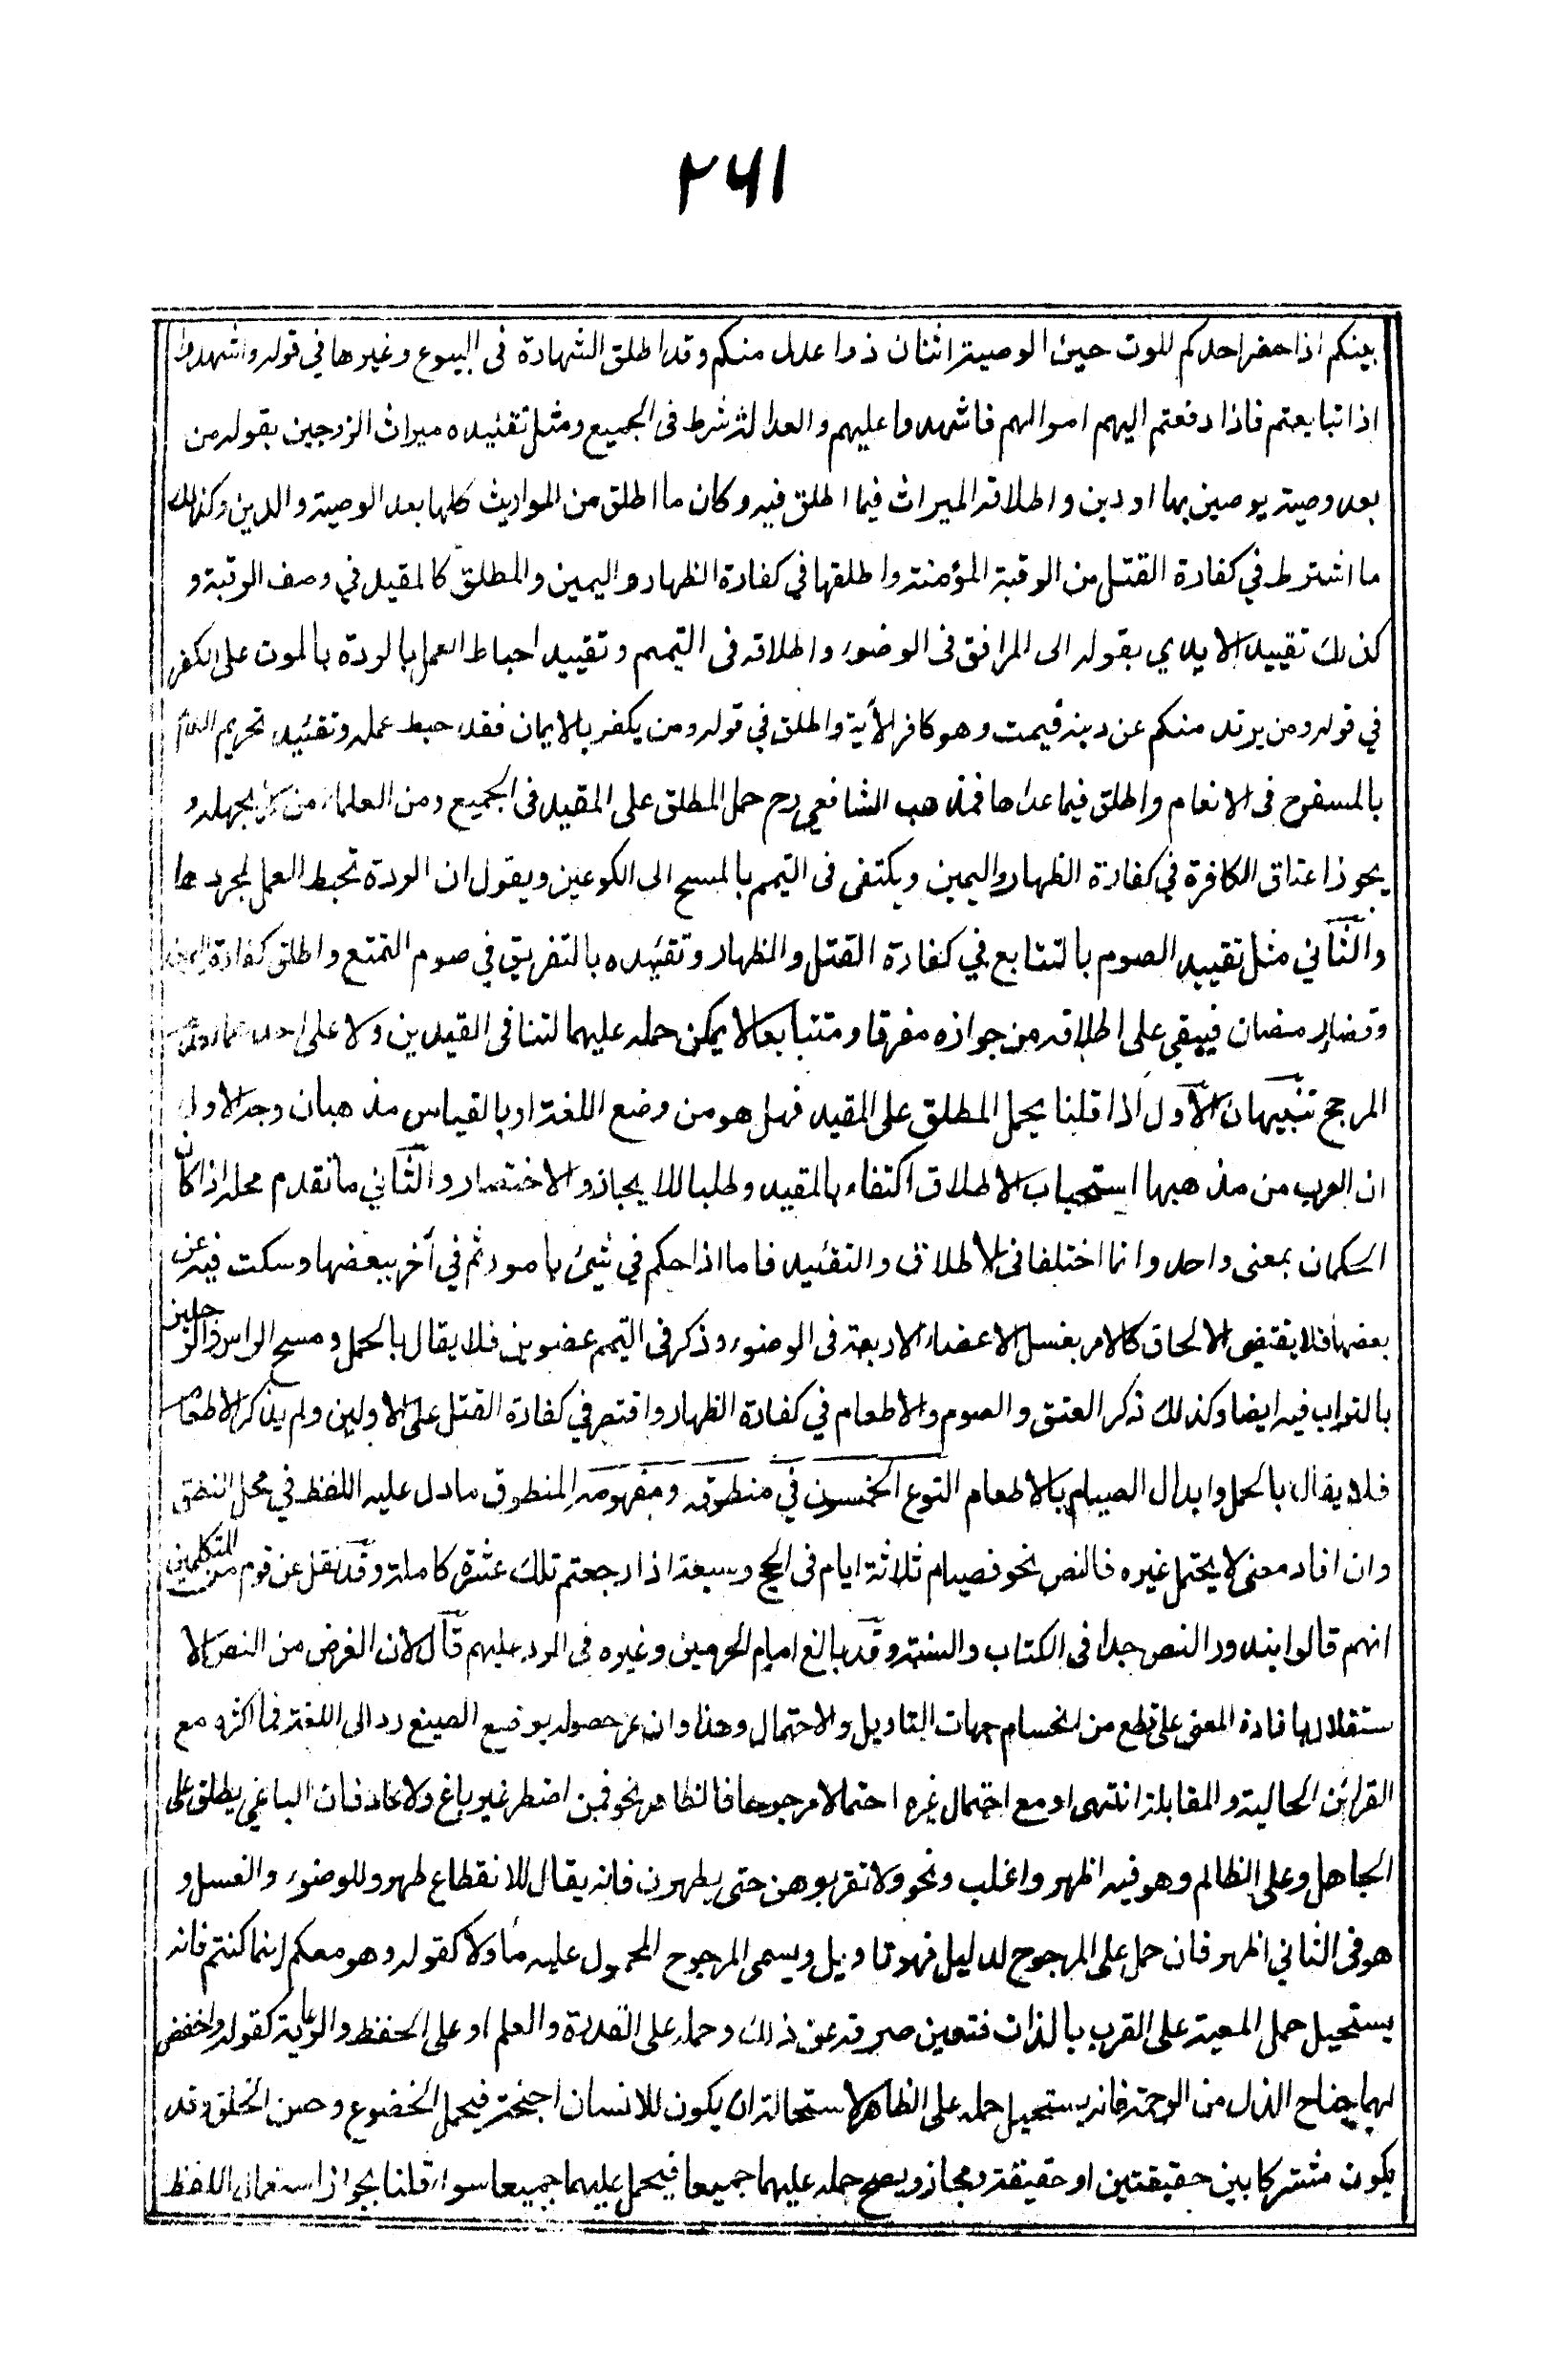 ٢٦١
بينكم اذا حضر احدكم الموت حين الوصية اثنان ذوا عدل منكم وقد اطلق الشهادة فى البيوع وغيرها في قوله واشهدوا
اذا تبايعتم فاذا دفعتم اليهم اموالهم فاشهدوا عليهم والعدالة شرط فى الجميع ومثل تقئيده ميراث الزوجين بقوله من
بعد وصية يوصين بها او دين واطلاقه الميراث فيما اطلق فيه وكان ما اطلق من المواريث كلها بعد الوصية والدين وكذلك
ما اشترط في كفارة القتل من الرقبة المؤمنة واطلقها في كفارة الظهار واليمين والمطلق كالمقيد في وصف الرقبة و
كذلك تقييد الايدي بقوله الى المرافق فى الوضوء واطلاقه فى التيمم وتقييد احباط العمل بالردة بالموت على الكفر
في قوله ومن يرتد منكم عن دينه فيمت وهو كافر الأية واطلق في قوله ومن يكفر بالايمان فقد حبط عمله وتقئيد تحريم الدم
بالمسفوح فى الانعام واطلق فيما عداها فمذهب الشافعي رح حمل المطلق على المقيد فى الجميع ومن العلماء من لا يحمله و
يجوز اعتاق الكافرة في كفارة الظهار واليمين ويكتفى فى التيمم بالمسح الى الكوعين ويقول ان الردة تحبط العمل بمجردها
والثاني مثل تقييد الصوم بالتتابع في كفارة القتل والظهار وتقئيده بالتفريق في صوم التمتع واطلق كفارة اليمين
وقضاء رمضان فيبقي على اطلاقه من جوازه مفرقا ومتتابعا لا يمكن حمله عليهما لتنافى القيدين ولا على احدهما لعدم
المرجح تنبيهان الأول اذا قلنا يحمل المطلق على المقيد فهل هو من وضع اللغة او بالقياس مذهبان وجه الاول
ان العرب من مذهبها استحباب الاطلاق اكتفاء بالمقيد وطلبا للايجاز والاختصار والثاني ما تقدم محله اذا كان
الحكمان بمعنى واحد وانما اختلفا فى الاطلاق والتقئيد فاما اذا حكم في شيئ بامور ثم في أخر ببعضها وسكت فيه عن
بعضها فلا يقتضي الالحاق كالامر بغسل الاعضاء الاربعة فى الوضوء وذكر فى التيمم عضوين فلا يقال بالحمل ومسح الراس والرجلين
بالتراب فيه ايضا وكذلك ذكر العتق والصوم والاطعام في كفارة الظهار واقتصر في كفارة القتل على الاولين ولم يذكر الاطعام
فلا يقال بالحمل وابدال الصيام بالاطعام النوع الخمسون في منطوقه ومفهومه المنطوق ما دل عليه اللفظ في محل النطق
وان افاد معنى لا يحتمل غيره فالنص نحو فصيام ثلاثة ايام فى الحج وسبعة اذا رجعتم تلك عشرة كاملة وقد نقل عن قوم من المتكلمين
انهم قالوا بندور النص جدا فى الكتاب والسنة وقد بالغ امام الحرمين وغيره فى الرد عليهم قال لان الغرض من النص الا
ستقلال بافادة المعنى على قطع من انحسام جهات التاويل والاحتمال وهذا وان عز حصوله بوضع الصيغ رد الى اللغة فما اكثره مع
القرائن الحالية والمقابلة انتهى او مع احتمال غيره احتمالا مرجوحا فالظاهر نحو فمن اضطر غير باغ ولا عاد فان الباغي يطلق على
الجاهل وعلى الظالم وهو فيه اظهر واغلب ونحو ولا تقربوهن حتى يطهرن فانه يقال للانقطاع طهر وللوضوء والغسل و
هو فى الثاني اظهر فان حمل على المرجوح لدليل فهو تاويل ويسمى المرجوح المحمول عليه مأولا كقوله وهو معكم اينما كنتم فانه
يستحيل حمل المعية على القرب بالذات فتعين صرفه عن ذلك وحمله على القدرة والعلم او على الحفظ والرعاية كقوله واخفض
لهما جناح الذل من الرحمة فانه يستحيل حمله على الظاهر لاستحالة ان يكون للانسان اجنحة فيحمل الخضوع وحسن الخلق وقد
يكون مشتركا بين حقيقتين او حقيقة ومجاز ويصح حمله عليهما جميعا فيحمل عليهما جميعا سواء قلنا بجواز استعمال اللفظ